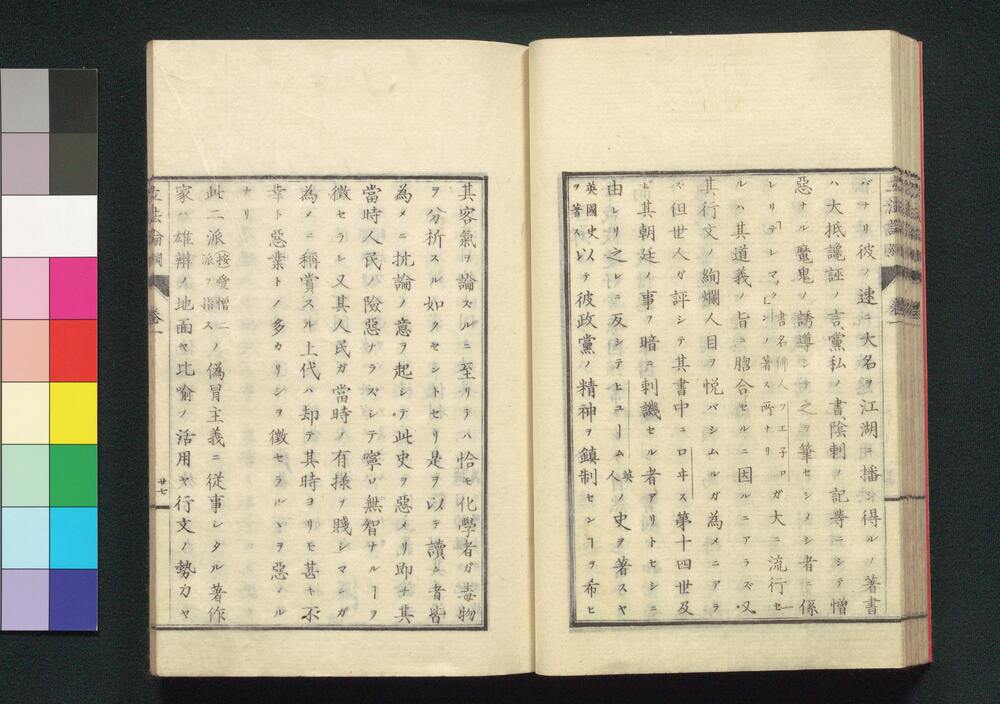 バナリ彼ノ速ニ大名ヲ江湖ニ播シ得ルノ著書
ハ大抵讒誣ノ言、黨私ノ書、陰刺ノ記等ニシテ憎
惡ナル魔鬼ノ誘導シテ之ヲ筆セシメシ者ニ係
レリテレマック書名佛人フエ子ロンノ著ス所ナリガ大ニ流行セ
ルハ其道義ノ旨ニ脗合セルニ因ルニアラズ又
其行文ノ絢爛人目ヲ悦バシムルガ為メニアラ
ズ但世人ガ評シテ其書中ニロヰス第十四世及
ビ其朝廷ノ事ヲ暗ニ刺譏セル者アリトセシニ
由レリ之レニ反シテヒユーム英人ノ史ヲ著スヤ
英國史ヲ著ス以テ彼政黨ノ精神ヲ鎮制センヿヲ希ヒ
其客氣ヲ論ズルニ至リテハ恰モ化學者ガ毒物
ヲ分析スル如クセシトセリ是ヲ以テ讀ム者皆
為メニ抗論ノ意ヲ起シテ此史ヲ惡メリ即チ其
當時人民ハ險惡ナラズシテ寧ロ無智ナルヿヲ
徴セラレ又其人民ガ當時ノ有様ヲ賤シマンガ
為メニ稱賞スル上代ハ却テ其時ヨリモ甚キ不
幸ト惡業トノ多カリシヲ徴セラルヽヲ惡メル
ナリ
此二派接愛憎二派ヲ指スノ偽冒主義ニ從事シタル著作
家ハ雄辯ノ地面ヤ比喩ノ活用ヤ行文ノ勢力ヤ
立法論綱 卷一
廿七